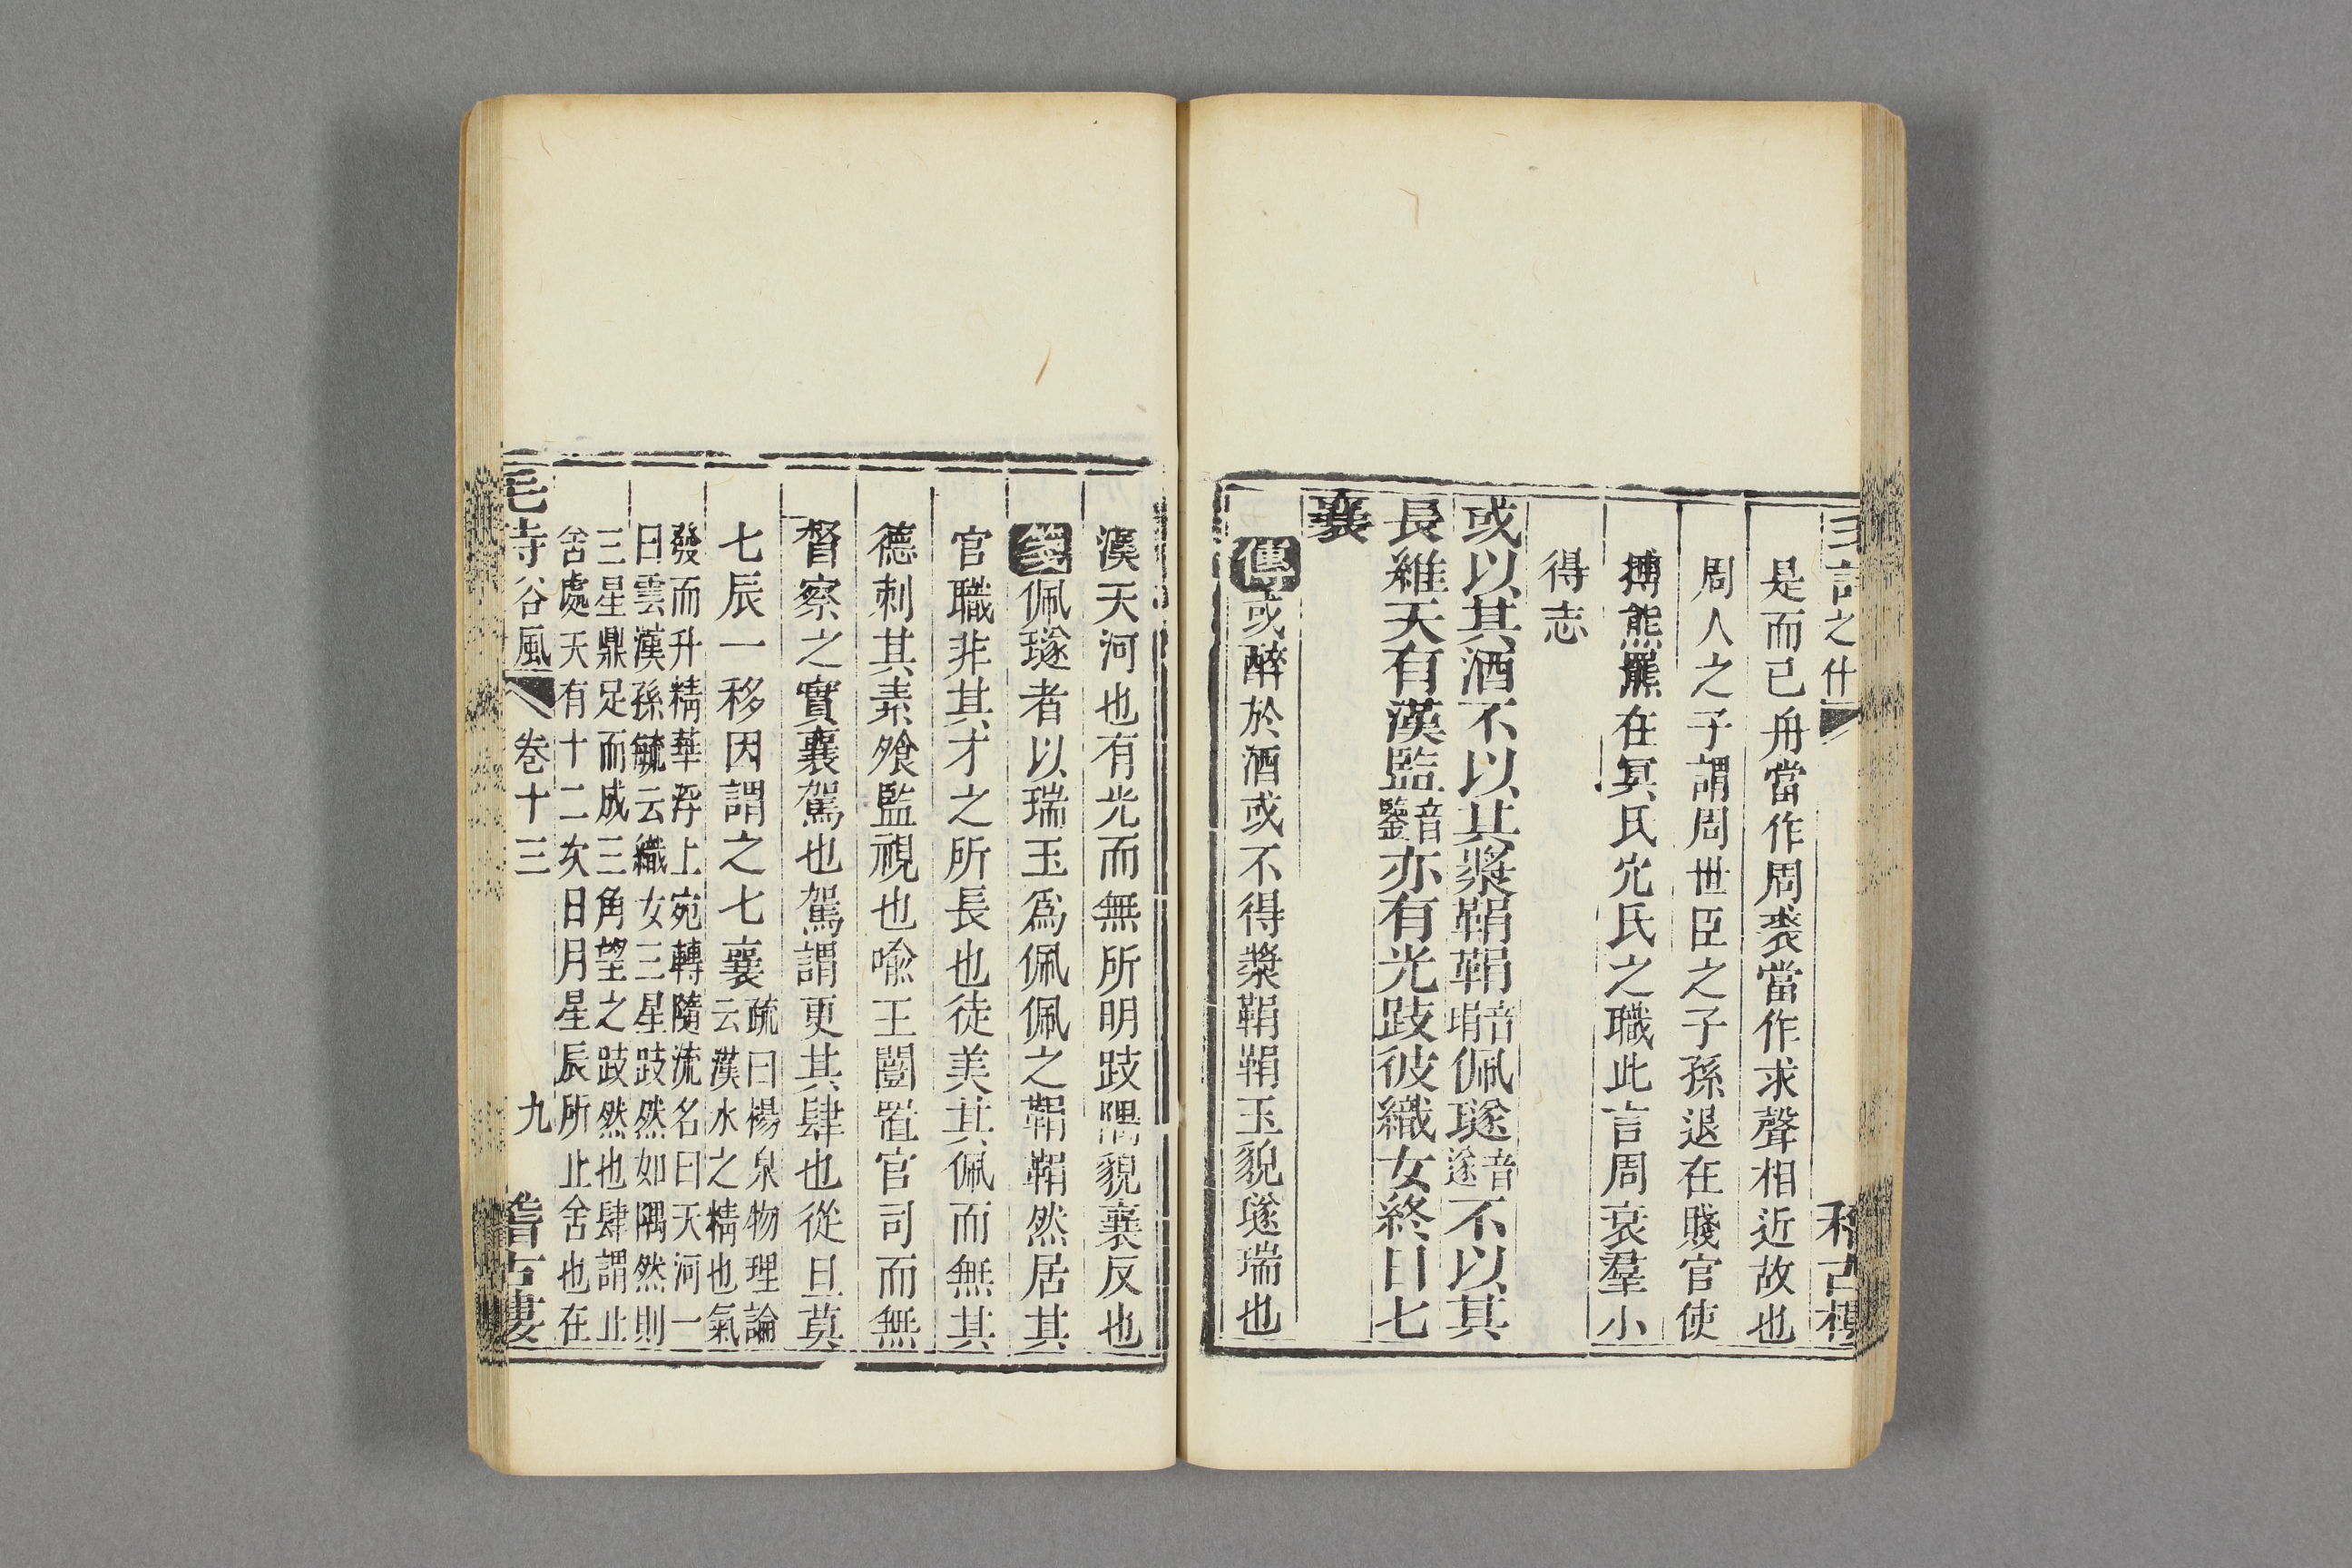 是而已舟當作周裘當作求聲相近故也
周人之子謂周世臣之子孫退在賤官使
搏熊羆在冥氏穴氏之職此言周衰羣小
得志
或以其酒不以其漿鞙鞙音琄佩璲音遂不以其
長維天有漢監音鑒亦有光跂彼織女終日七
襄
傳或醉於酒或不得漿鞙鞙玉貌璲瑞也
漢天河也有光而無所明跂隅貌襄反也
箋佩璲者以瑞玉爲佩佩之鞙鞙然居其
官職非其才之所長也徒美其佩而無其
德刺其素飱監視也喩王闓置官司而無
督察之實襄駕也駕謂更其肆也從旦莫
七辰一移因謂之七襄疏曰楊泉物理論
云漢水之精也氣
發而升精華浮上宛轉隨流名曰天河一
曰雲漢孫毓云織女三星跂然如隅然則
三星鼎足而成三角望之跂然也肆謂止
舍處天有十二次日月星辰所止舍也在
毛詩谷風 卷十三 九